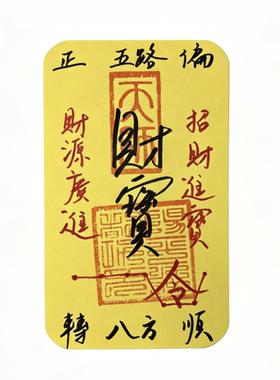 正 五路 偏
招財進寶
財寶
財源廣進
令
轉 八方 順